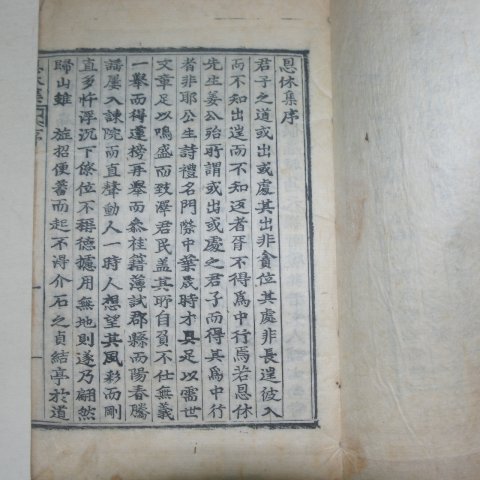 恩休集序
君子之道或出或處其出非貪位其處非長遑彼入
而不知出遑而不知返者胥不得爲中行焉若恩休
先生姜公殆所謂或出或處之君子而得其爲中行
者非耶公生詩禮名門際中葉晟時才具足以需世
文章足以鳴盛而致澤君民蓋其所自負不仕無義
一擧而得蓮榜再擧而叅桂籍薄試郡縣而陽春騰
謠屢入諫院而直聲動人一時人想望其風彩而剛
直多忤浮沉下僚位不稱德攄用無地則遂乃翩然
歸山雖旌招便蕃而起不得介石之貞結亭於道